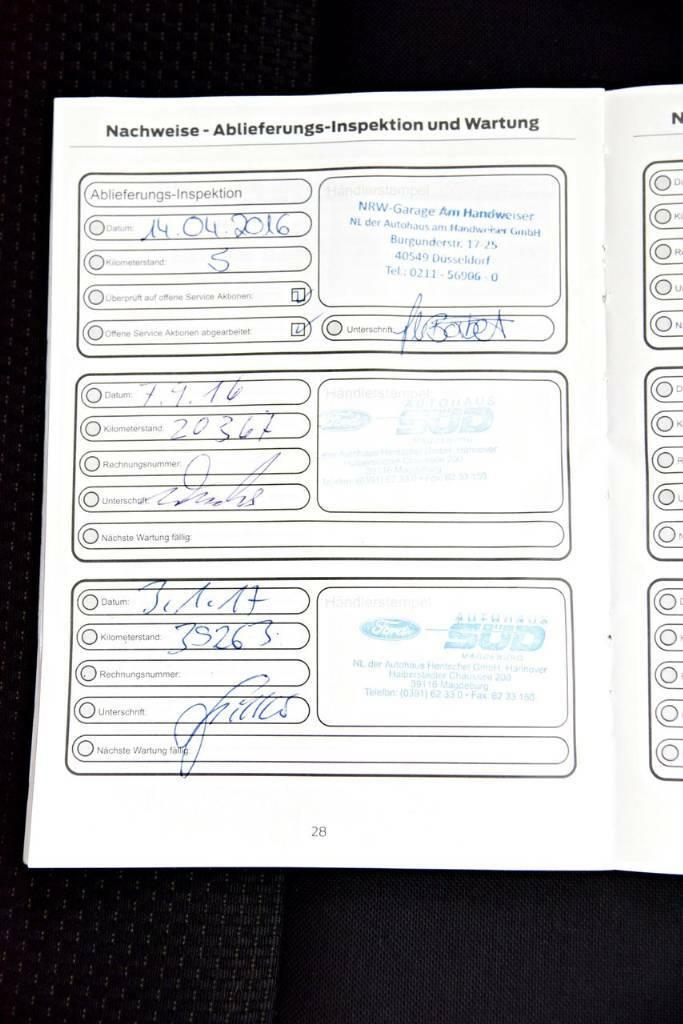 Nachweise - Ablieferungs-Inspektion und Wartung
Ablieferungs-Inspektion
Datum: 14.04.2016
Kilometerstand: 5
Überprüft auf offene Service Aktionen:
Offene Service Aktionen abgearbeitet:
Händlerstempel
NRW-Garage Am Handweiser
NL der Autohaus am Handweiser GmbH
Burgunderstr. 17-25
40549 Düsseldorf
Tel.: 0211 - 56906 - 0
Unterschrift:
Datum: 7.7.16
Kilometerstand: 20367
Rechnungsnummer:
Unterschrift:
Nächste Wartung fällig:
Händlerstempel
Ford
AUTOHAUS
SÜD
MAGDEBURG
der Autohaus Hentschel GmbH, Hannover
Halberstädter Chaussee 200
39116 Magdeburg
Telefon: (0391) 62 33 0 • Fax: 62 33 150
Datum: 3.1.17
Kilometerstand: 39263
Rechnungsnummer:
Unterschrift:
Nächste Wartung fällig:
Händlerstempel
Ford
AUTOHAUS
SÜD
MAGDEBURG
NL der Autohaus Hentschel GmbH, Hannover
Halberstädter Chaussee 200
39116 Magdeburg
Telefon: (0391) 62 33 0 • Fax: 62 33 150
28
N